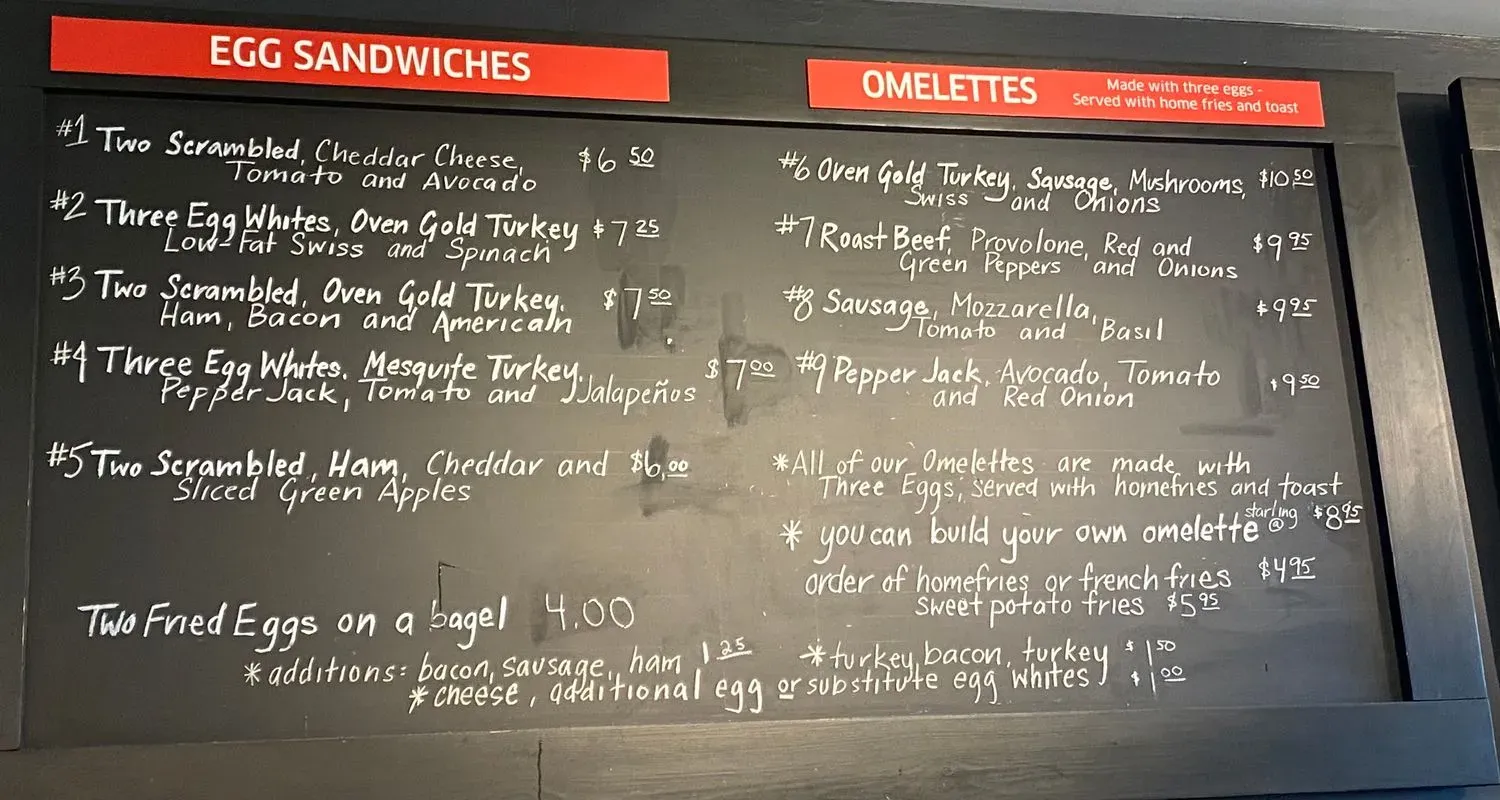 EGG SANDWICHES
#1 Two Scrambled, Cheddar Cheese, $6 50
Tomato and Avocado
#2 Three Egg Whites, Oven Gold Turkey $7 25
Low-Fat Swiss and Spinach
#3 Two Scrambled, Oven Gold Turkey, $7 50
Ham, Bacon and American
#4 Three Egg Whites, Mesquite Turkey, $7 00
Pepper Jack, Tomato and Jalapeños
#5 Two Scrambled, Ham, Cheddar and $6.00
Sliced Green Apples
Two Fried Eggs on a bagel 4.00
OMELETTES
Made with three eggs -
Served with home fries and toast
#6 Oven Gold Turkey, Sausage, Mushrooms, $10 50
Swiss and Onions
#7 Roast Beef, Provolone, Red and $9 95
Green Peppers and Onions
#8 Sausage, Mozzarella, $9 95
Tomato and Basil
#9 Pepper Jack, Avocado, Tomato $9 50
and Red Onion
*All of our Omelettes are made with
Three Eggs, served with homefries and toast
* you can build your own omelette starting @ $8 95
order of homefries or french fries $4 95
sweet potato fries $5 95
* additions: bacon, sausage, ham 1 25 * turkey, bacon, turkey $1 50
* cheese, additional egg or substitute egg whites $1 00